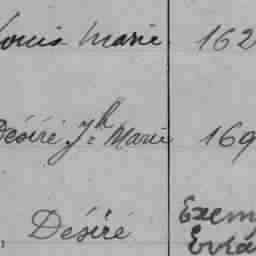 Louis Marie 162
Désiré Jh Marie 169
Désiré Exem